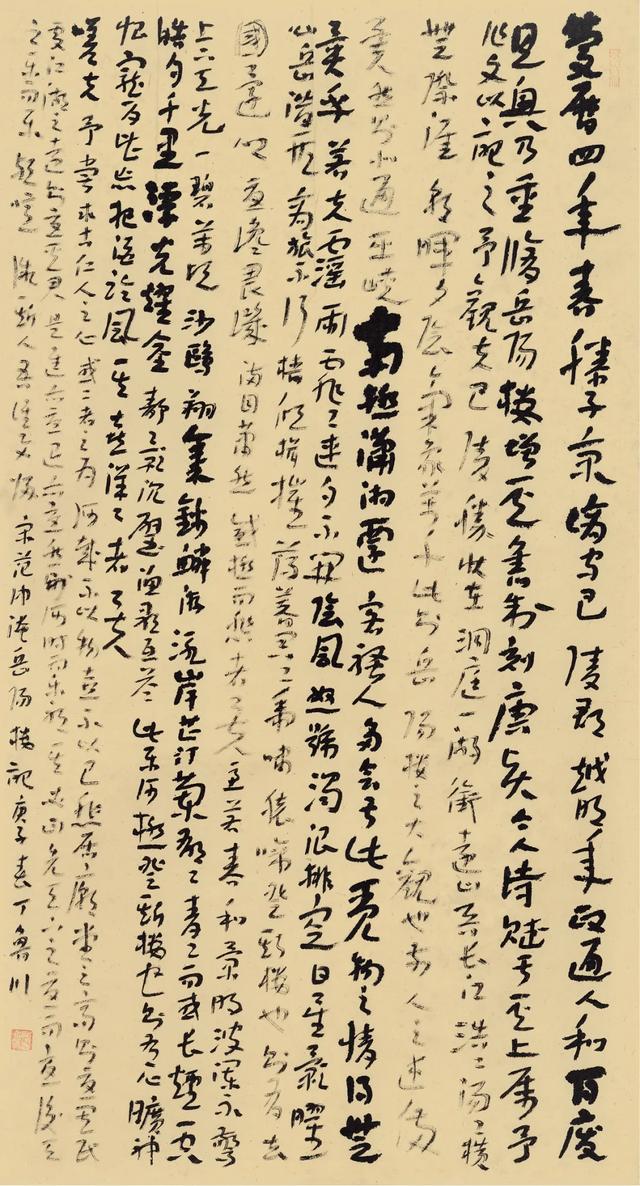 慶曆四年春滕子京謫守巴陵郡越明年政通人和百廢
具興乃重修岳陽樓增其舊制刻唐賢今人詩賦于其上屬予
作文以記之予觀夫巴陵勝狀在洞庭一湖銜遠山吞長江浩浩湯湯橫
無際涯朝暉夕陰氣象萬千此則岳陽樓之大觀也前人之述備
矣然則北通巫峽南極瀟湘遷客騷人多會于此覽物之情得無
異乎若夫霪雨霏霏連月不開陰風怒號濁浪排空日星隱曜
山岳潛形商旅不行檣傾楫摧薄暮冥冥虎嘯猿啼登斯樓也則有去
國懷鄉憂讒畏譏滿目蕭然感極而悲者矣至若春和景明波瀾不驚
上下天光一碧萬頃沙鷗翔集錦鱗游泳岸芷汀蘭郁郁青青而或長煙一空
皓月千里浮光耀金靜影沉璧漁歌互答此樂何極登斯樓也則有心曠神
怡寵辱皆忘把酒臨風其喜洋洋者矣
嗟夫予嘗求古仁人之心或二者之為何哉不以物喜不以己悲居廟堂之高則憂其民
處江湖之遠則憂其君是進亦憂退亦憂然則何時而樂耶其必曰先天下之憂而憂後天
之樂而樂歟噫微斯人吾誰與歸宋范仲淹岳陽樓記庚子春丁魯川